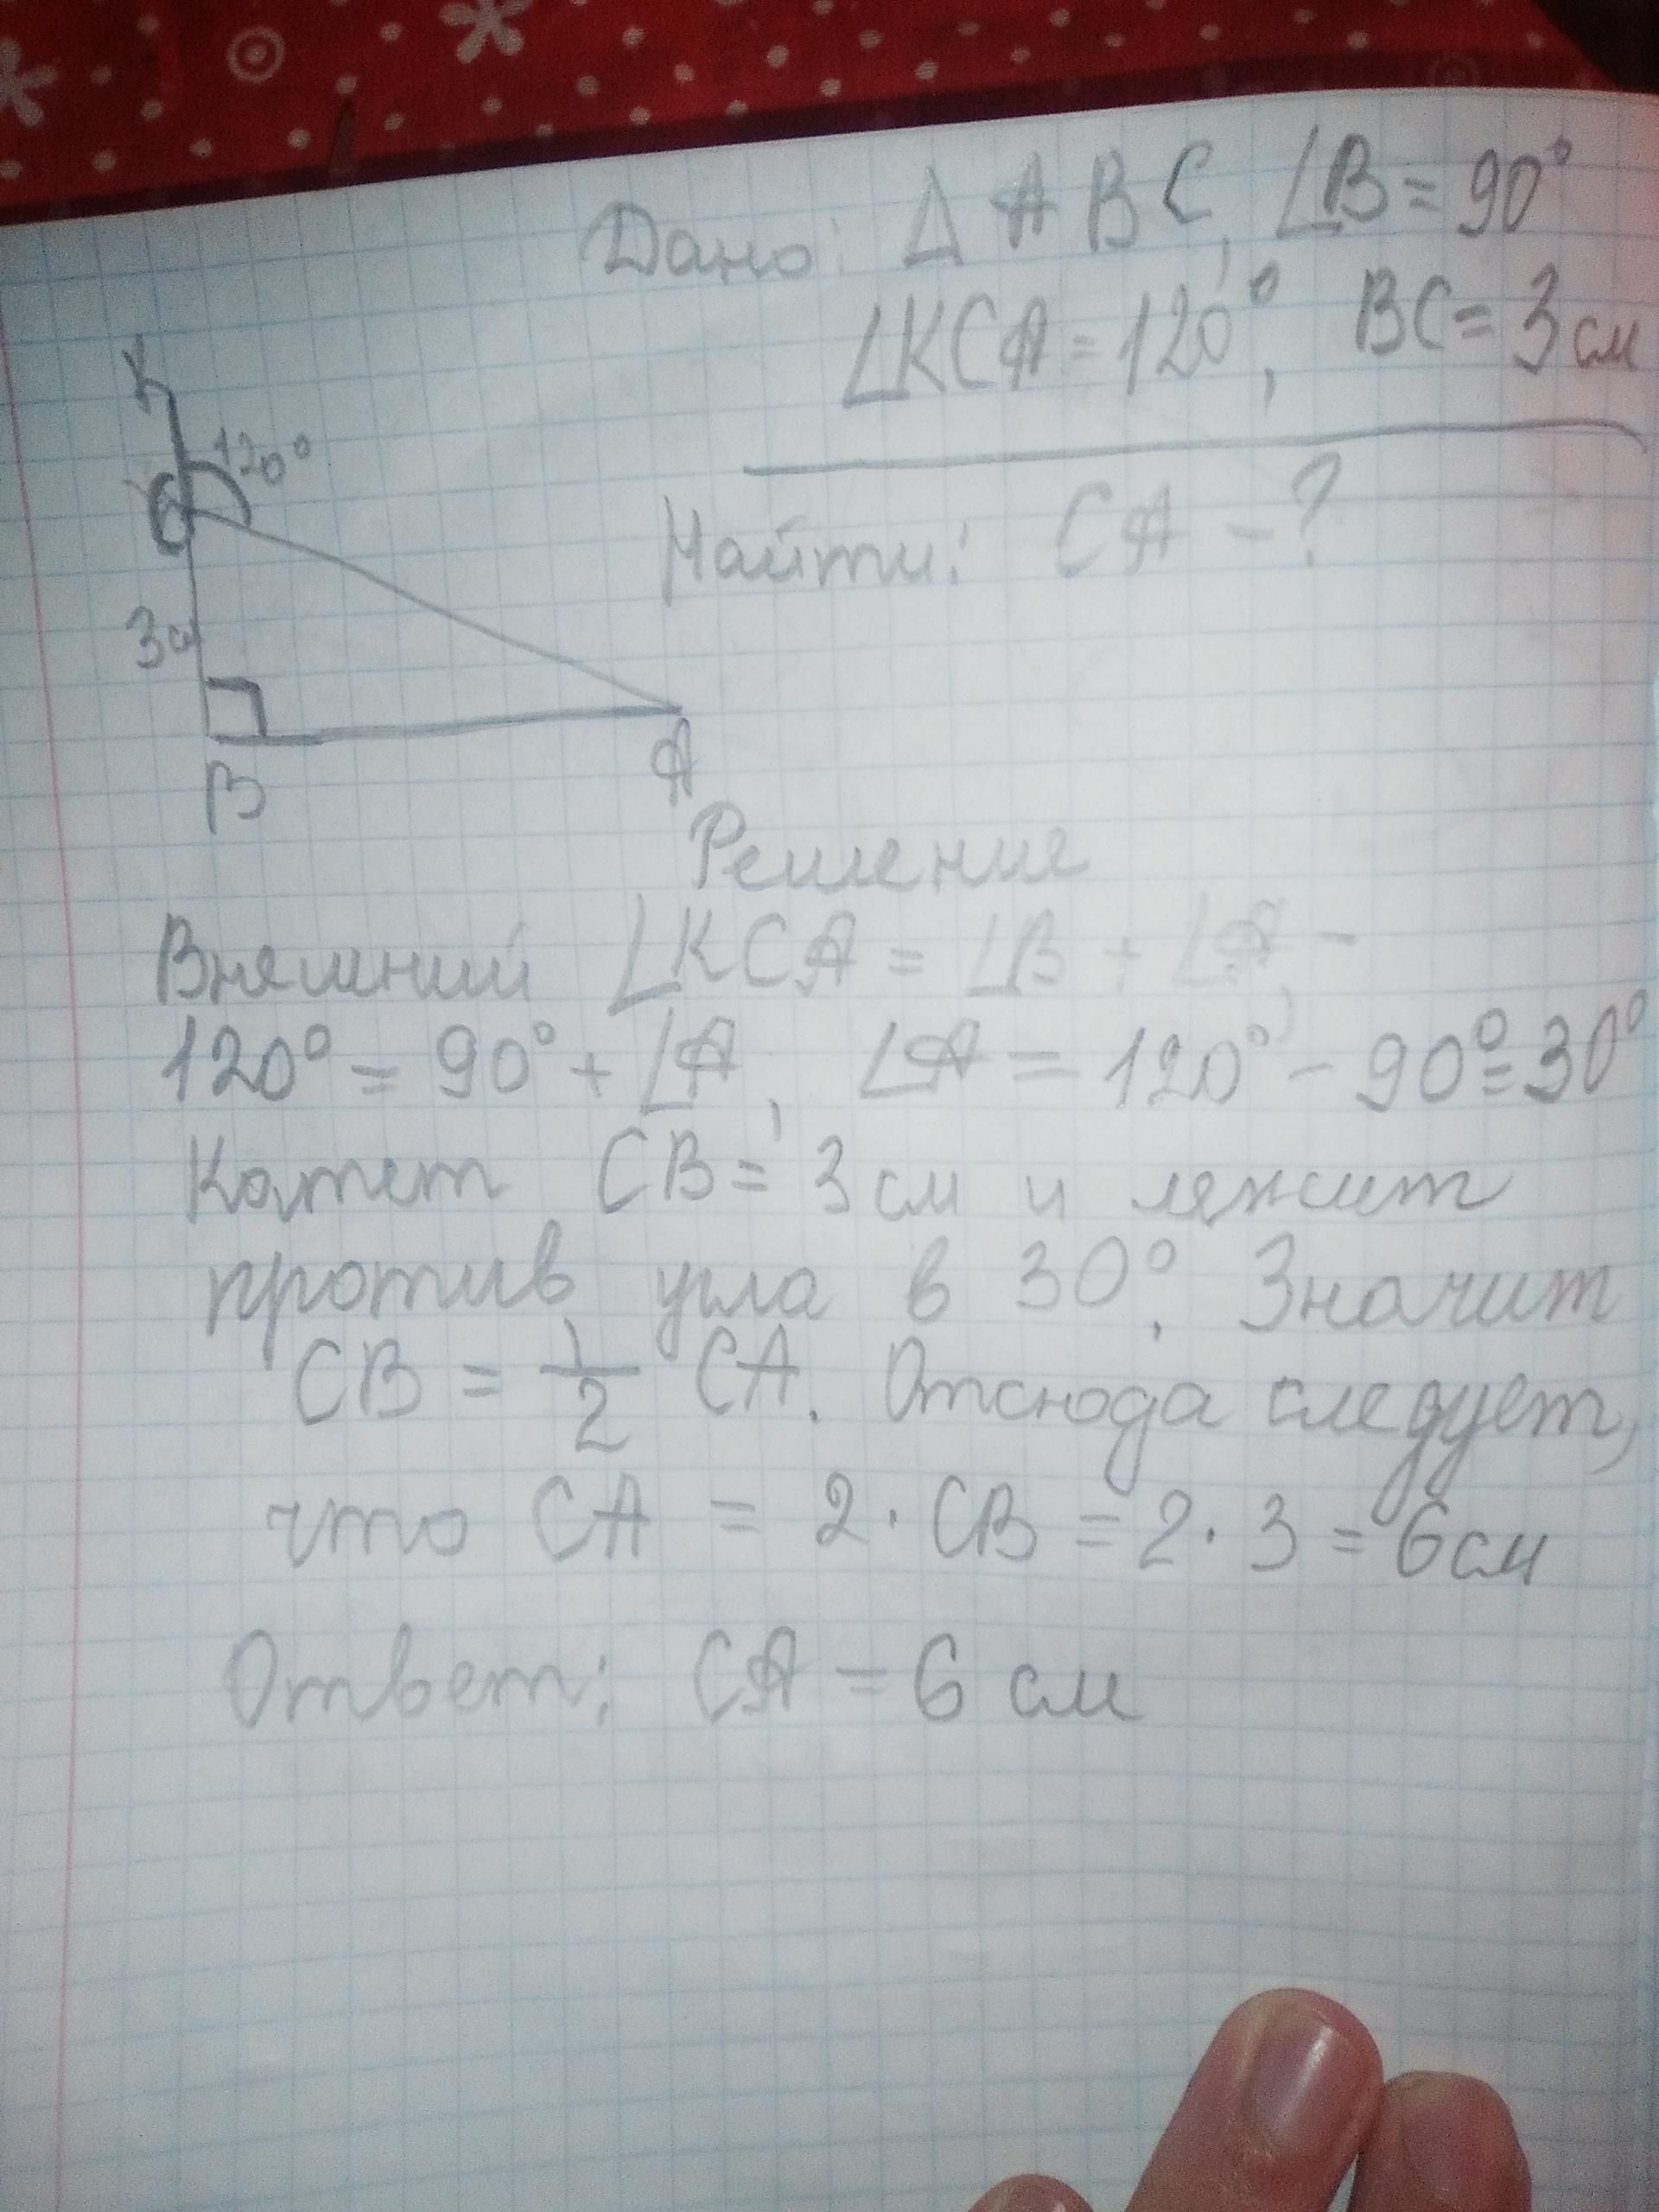 Дано: Δ ABC, ∠B = 90°
∠KCA = 120°, BC = 3 см
Найти: CA - ?
K
120°
C
3с
B
A
Решение
Вняшний ∠KCA = ∠B + ∠A -
120° = 90° + ∠A, ∠A = 120° - 90° = 30°
Катет CB = 3 см и ляжит
против угла в 30°. Значит
CB = 1/2 CA. Отсюда следует,
что CA = 2 · CB = 2 · 3 = 6 см
Ответ: CA = 6 см